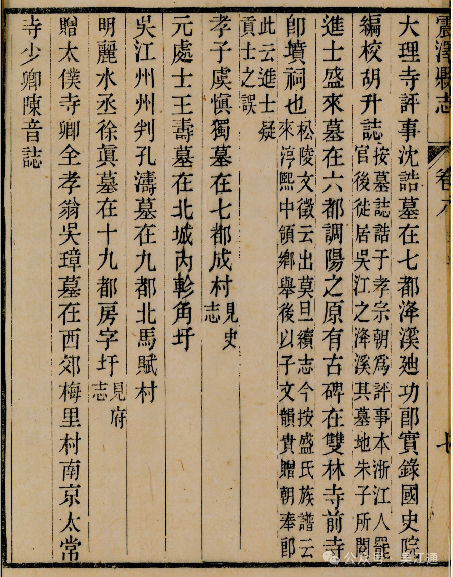 震澤縣志
卷
七
大理寺評事沈誥墓在七都浲溪廸功郎實錄國史院
編校胡升誌
按墓誌誥于孝宗朝爲評事本浙江人罷
官後徙居吳江之浲溪其墓地朱子所閱
進士盛來墓在六都調陽之原有古碑在雙林寺前寺
卽墳祠也
松陵文徵云出莫旦續志今按盛氏族譜云
來淳熙中領鄉舉後以子文韻貴贈朝奉郎
此云進士疑
貢士之誤
孝子虞愼獨墓在七都成村
見史
志
元處士王壽墓在北城內軫角圩
吳江州州判孔濤墓在九都北馬賦村
明麗水丞徐眞墓在十九都房字圩
見府
志
贈太僕寺卿全孝翁吳璋墓在西郊梅里村南京太常
寺少卿陳音誌
公众号 · 吴江通